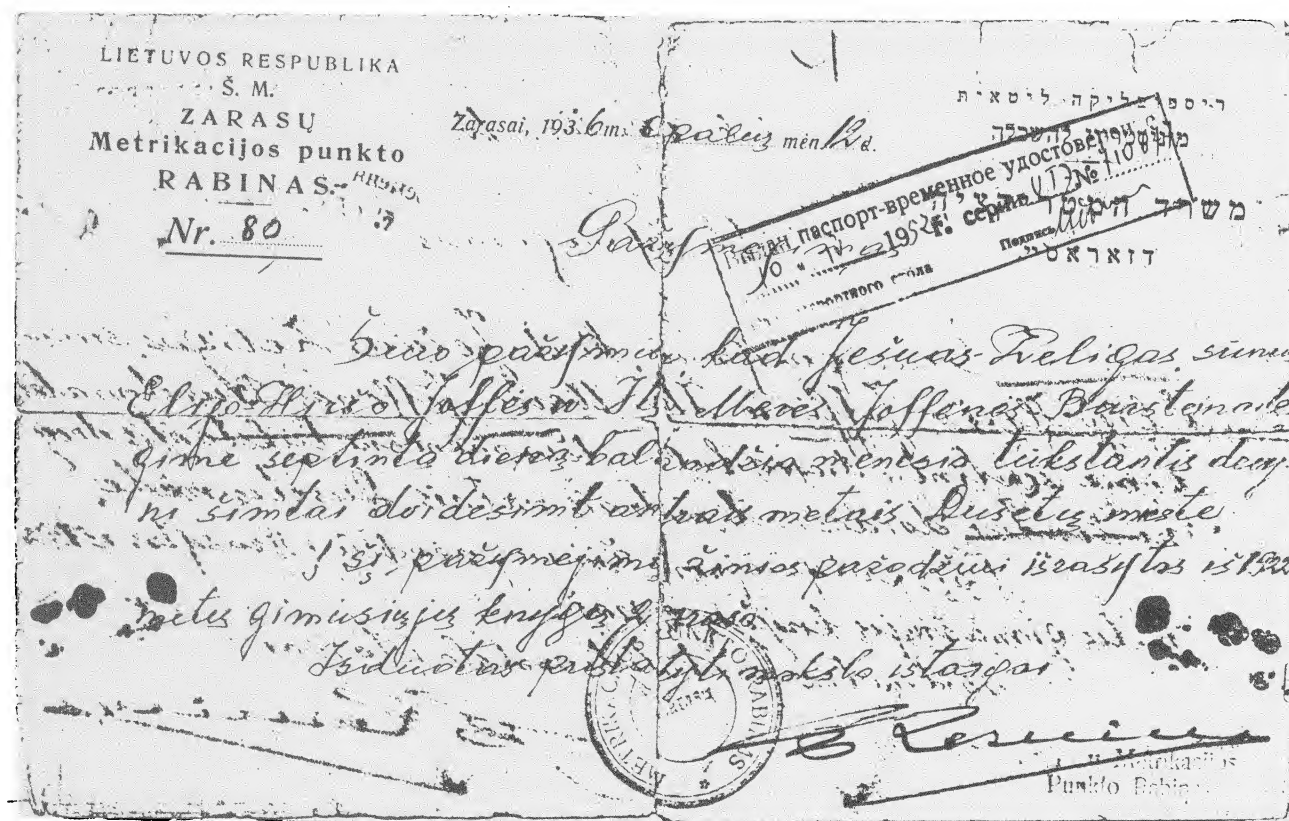 LIETUVOS RESPUBLIKA
Š. M.
ZARASŲ
Metrikacijos punkto
RABINAS
Nr. 80
Zarasai, 1936 m. spalių mėn. 12 d.
ליטאית
משרד
דזאראסיי
паспорт-временное удостоверен.
1952 г. серия №
Подпись
Šiuo pažymiu, kad Ješuas-Zeligas sūnus
Elijo-Hiršo Joffės ir Merės Joffenės
gimė septintą dieną balandžio mėnesio tūkstantis devy-
ni šimtai dvidešimt antrais metais Dusetų mieste.
Šį pažymėjimą žinios pažodžiui išrašytos iš 1922
metų gimusiųjų knygos
Išduotas pristatyti mokslo įstaigai
METRIKACIJOS PUNKTO RABINAS
Metrikacijos
Punkto Rabinas